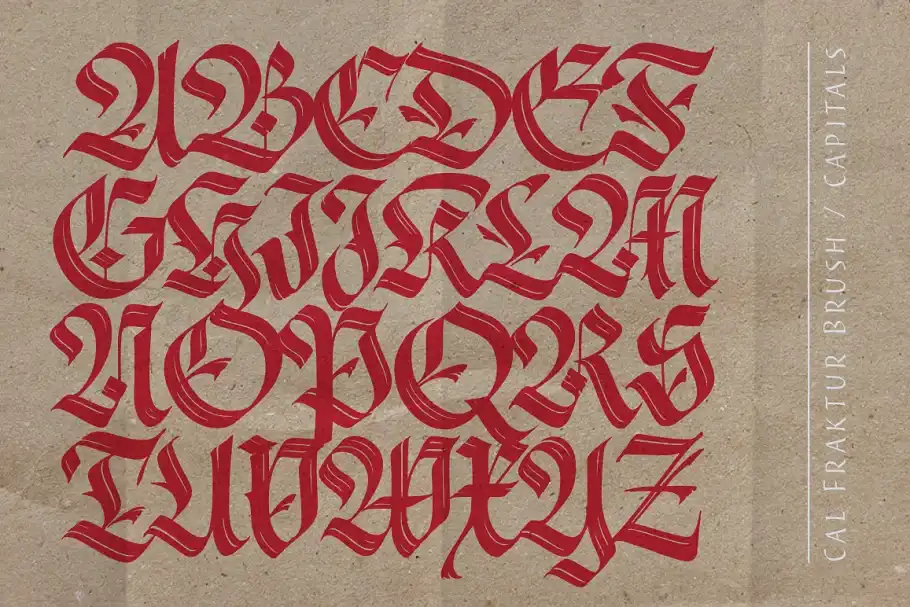 ABCDEF
GHIJKLM
NOPQRS
TUVWXYZ
CAL FRAKTUR BRUSH / CAPITALS